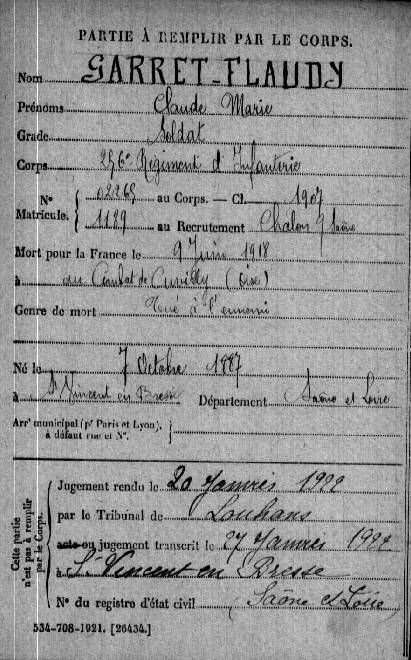 PARTIE À REMPLIR PAR LE CORPS.
Nom GARRET-FLAUDY
Prénoms Claude Marie
Grade Soldat
Corps 256e Régiment d'Infanterie
N° Matricule. { 02265 au Corps. — Cl. 1907
1129 au Recrutement Chalon s/ Saône
Mort pour la France le 9 Juin 1918
à au Combat de Cuvilly (Oise)
Genre de mort Tué à l'ennemi
Né le 7 Octobre 1887
à St Vincent en Bresse Département Saône et Loire
Arrt municipal (pr Paris et Lyon),
à défaut rue et N°.
Cette partie n'est pas à remplir par le Corps.
Jugement rendu le 20 Janvier 1922
par le Tribunal de Louhans
acte ou jugement transcrit le 27 Janvier 1922
à St Vincent en Bresse
N° du registre d'état civil Saône et Loire
534-708-1921. [26434.]